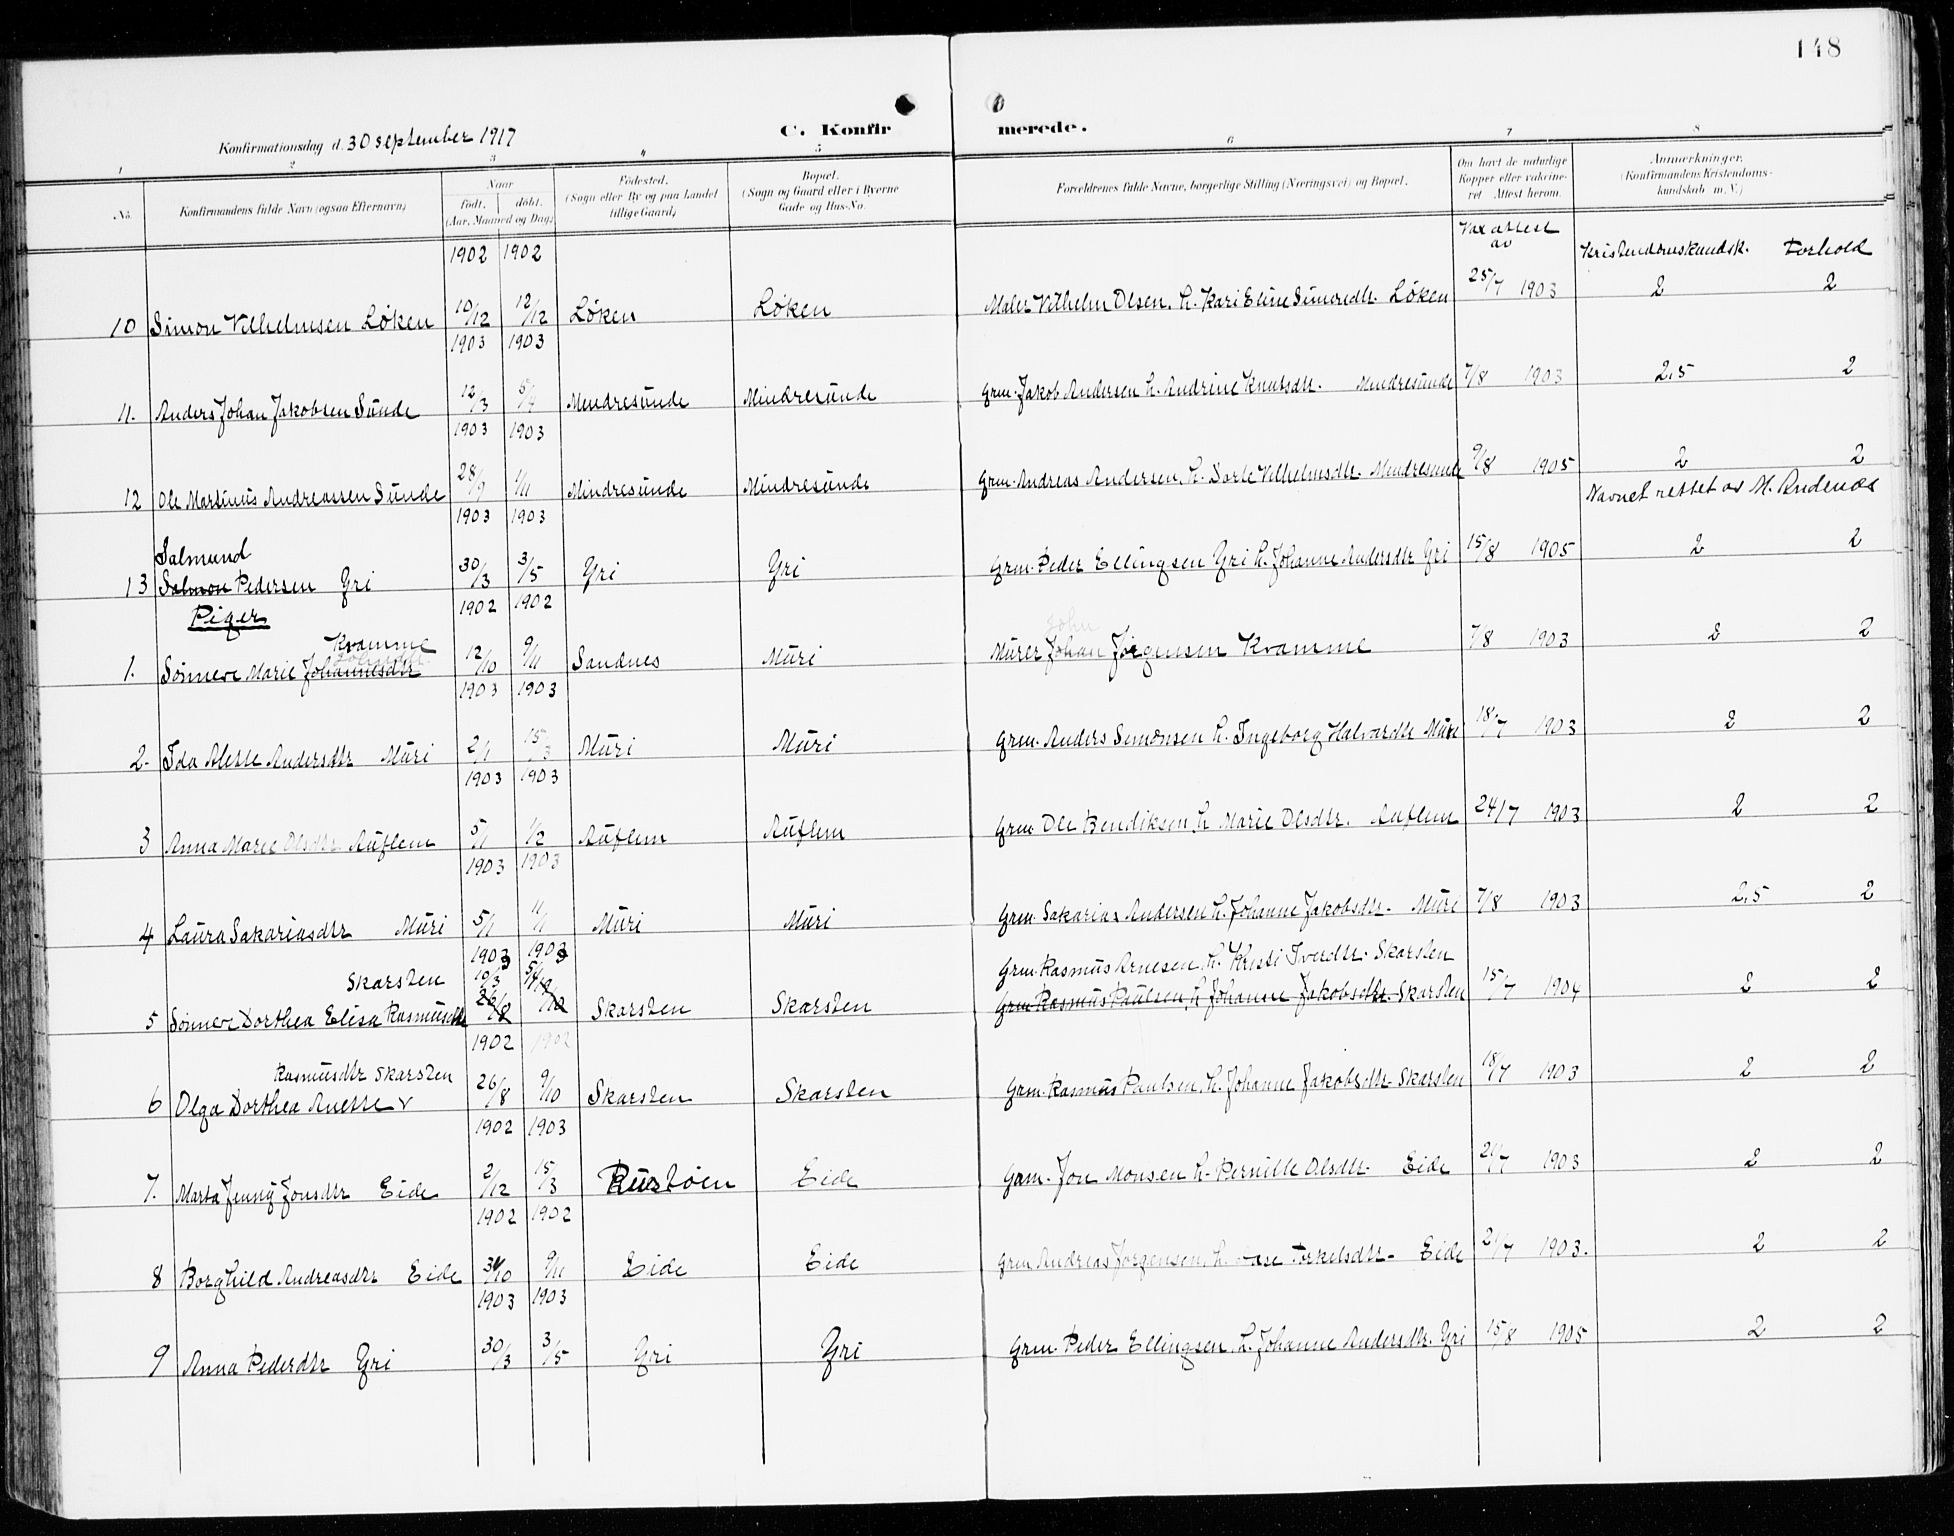 148
Konfirmationsdag d. 30 september 1917
C. Konfirmerede.
1 2 3 " 5 6 7 8
No. Konfirmandens fulde Navn (ogsaa Efternavn) Naar født. døbt. (Aar, Maaned og Dag) Fødested. (Sogn eller By og paa Landet tillige Gaard) Bopæl. (Sogn og Gaard eller i Byerne Gade og Hus-No. Forældrenes fulde Navne, borgerlige Stilling (Næringsvei) og Bopæl. Om havt de naturlige Kopper eller vakcineret Attest herom. Anmærkninger. (Konfirmandens Kristendomskundskab m. V.)
Vax attest av Kristendomskundsk. Forhold
1902 1902
10 Simon Vilhelmsen Løken 10/12 12/12 Løken Løken Maler Vilhelm Olsen, h. Kari Eline Simonsdtr. Løken 25/7 1903 2 2
1903 1903
11. Anders Johan Jakobsen Sunde 12/3 5/4 Mindresunde Mindresunde Grm. Jakob Andersen h. Andrine Knutsdtr. Mindresunde 7/8 1903 2,5 2
1903 1903
12 Ole Martinus Andreassen Sunde 28/9 1/11 Mindresunde Mindresunde Grm. Andreas Andersen, h. Dorte Vilhelmsdtr. Mindresunde 9/8 1905 2 2
Navnet rettet av M. Andenæs
1903 1903
Salmund
13 Salmon Pedersen Yri 30/3 3/5 Yri Yri Grm. Peder Ellingsen Yri h. Johanne Andersdtr Yri 15/8 1905 2 2
Piger
1902 1902
Kvamme John
1. Sønneve Marie Johannesdtr 12/10 9/11 Sandnes Muri Murer Johan Jørgensen Kvamme 7/8 1903 2 2
1903 1903
2. Ida Alette Andersdtr Muri 2/1 15/3 Muri Muri Grm. Anders Simonsen h. Ingeborg Halvardtr Muri 18/7 1903 2 2
1903 1903
3 Anna Marie Olsdtr Auflem 5/1 1/2 Auflem Auflem Grm. Ole Bendiksen, h Marie Olsdtr. Auflem 24/7 1903 2 2
1903 1903
4 Laura Sakariasdtr Muri 5/1 11/1 Muri Muri Grm. Sakarias Andersen h. Johanne Jakobsdtr. Muri 7/8 1903 2,5 2
1903 1903
Skarsten 10/3 5/4 Grm. Rasmus Arnesen, h. Kristi Iverdtr. Skarsten
5 Sønneve Dorthea Elisa Rasmusdtr 26/8 Skarsten Skarsten Grm Rasmus Paulsen, h Johanne Jakobsdtr. Skarsten 15/7 1904 2 2
1902 1902
Rasmusdtr Skarsten
6 Olga Dorthea Anette v 26/8 9/10 Skarsten Skarsten Grm. Rasmus Paulsen, h. Johanne Jakobsdtr. Skarsten 18/7 1903 2 2
1902 1903
7. Marta Jenny Jonsdtr Eide 2/12 15/3 Rustøen Eide Grm. Jon Monsen h. Pernille Olsdtr. Eide 21/7 1903 2 2
1902 1902
8 Borghild Andreasdtr Eide 31/10 9/11 Eide Eide Grm Andreas Jørgensen, h. Torkelsdtr. Eide 21/7 1903. 2 2
1903 1903
9 Anna Pedersdtr Yri 30/3 3/5 Yri Yri Grm. Peder Ellingsen, h. Johanne Andersdtr. Yri 15/8 1905 2 2